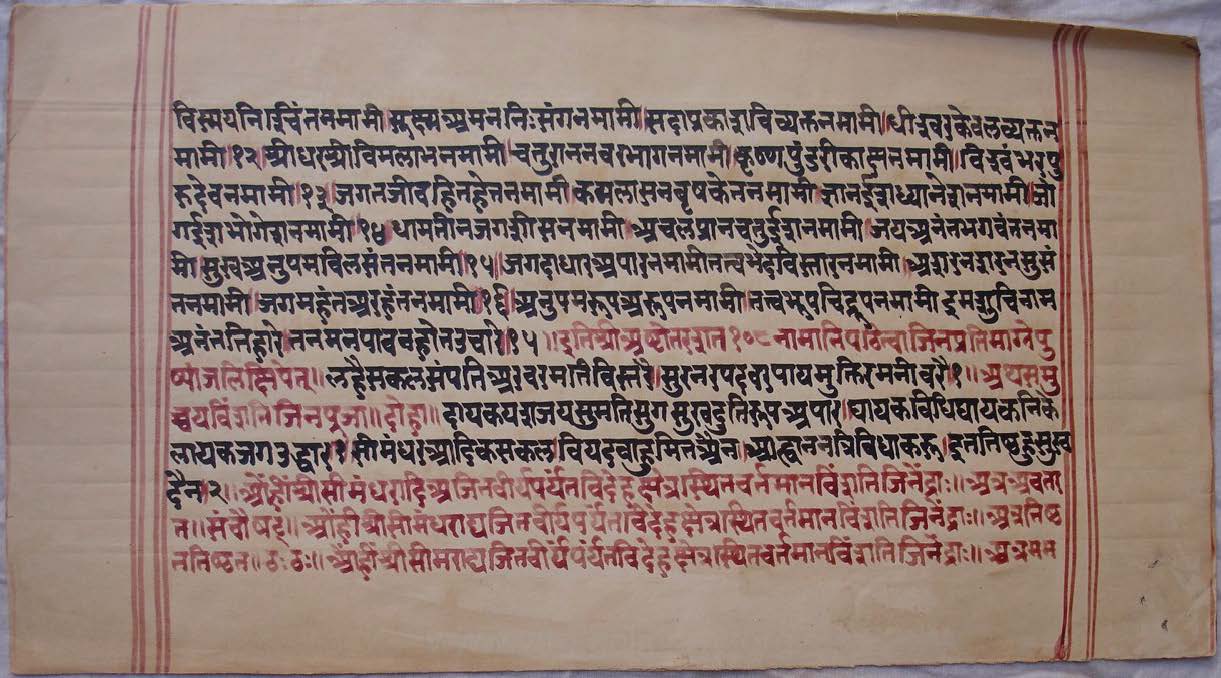 विस्मयनिरुचिंतनमामी। सूक्ष्मअमननिःसंगनमामी। सदाप्रकाशविव्यक्तनमामी। धीश्वरकेवलव्यक्तन
मामी। १२। श्रीधरश्रीविमलाभनमामी। चतुराननवरभागनमामी। कृष्णपुंडरीकाक्षनमामी। विश्वंभरपु
रुदेवनमामी। १३। जगतजीवहितहेतनमामी। कमलासनवृषकेतनमामी। ज्ञानईशध्यानेशनमामी। जो
गईशभोगेशनमामी। १४। धामतीनजगशीसनमामी। अचलप्रानचतुर्दशनमामी। जयअनंतभगवंतनमा
मी। सुखअनुपमविलसंतनमामी। १५। जगदाधारअपारनमामी। तत्वभेदविस्तारनमामी। अशरनशरनसुसं
तनमामी। जगमहंतअरहंतनमामी। १६। अनुपमरूपअरूपनमामी। तत्वभूपचिद्रूपनमामी। इमशुचिनाम
अनंततिहारे। नतमनपावव उचारे। १५ ।। इतिश्रीअष्टोतरशत १०८ नामानिपठित्वाजिनप्रतिमाग्रेपु
ष्पांजलिंक्षिपेत्।। लहैसकलसंपति । सुरनरपदवरपायमुक्तिरमनीवरै। १।। अथसमु
च्चयविंशतिजिनपूजा।। दोहा।। दायकयशजयसुमतिसुग अपार। घायकविधि
लायकजगउद्धार। १। सीमंधरआदिकसकल। वियदवाहुमितऐन। आह्वाननत्रिविधाकरूं। इततिष्ठहुसुख
दैन। २।। ओंह्रींश्रीसीमंधरादिअजितवीर्यपर्यंतविदेहक्षेत्रस्थितवर्तमानविंशतिजिनेंद्राः।। अत्रअवतर
त।। संवौषट्।। ओंह्रींश्रीसीमंधराद्यजितवीर्यपर्यंतविदेहक्षेत्रस्थितवर्तमानविंशतिजिनेंद्राः।। अत्रतिष्ठ
ततिष्ठत।। ठः ठः।। ओंह्रींश्रीसीमराद्यजितवीर्यपर्यंतविदेहक्षेत्रस्थितवर्तमानविंशतिजिनेंद्राः।। अत्रमम